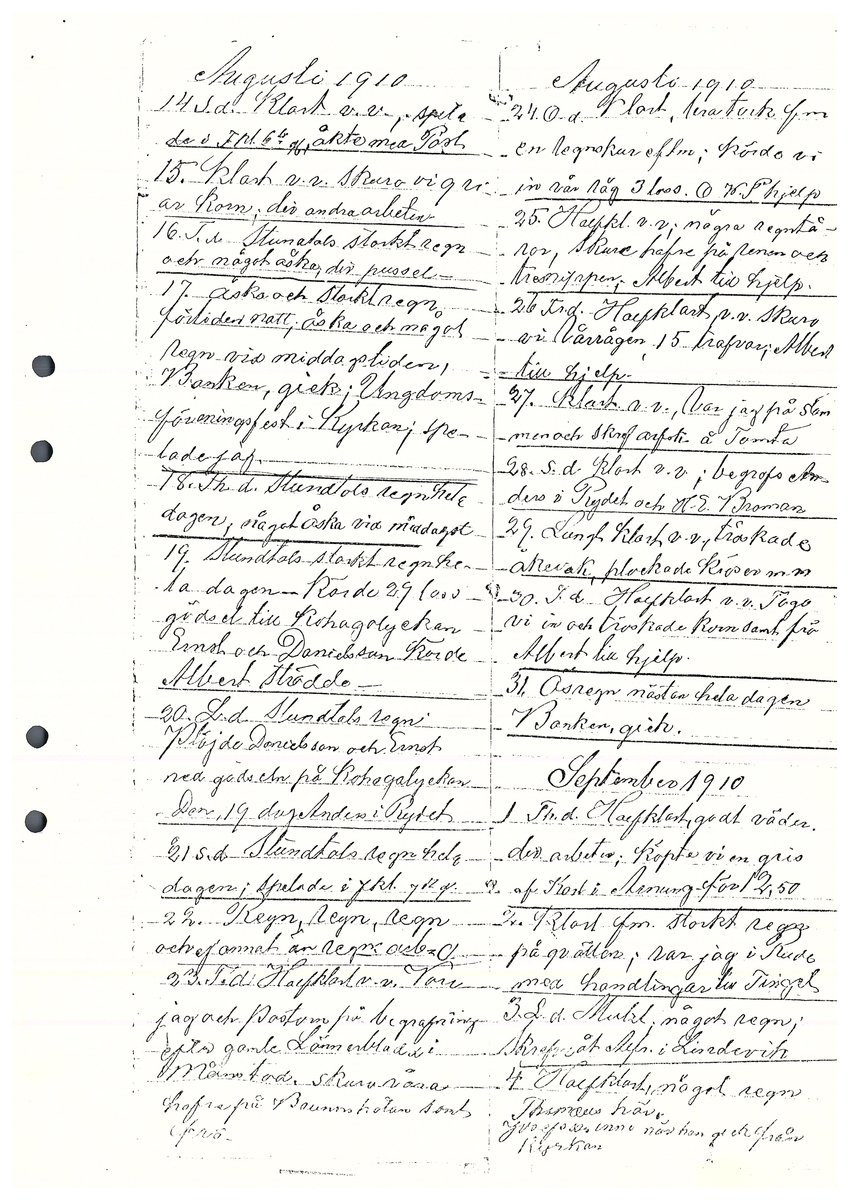 Augusti 1910
14 S.d. Klart v.v., spela
de i Fkl. åkte med Post
15. Klart v.v. skuro vi
av korn, div andra arbeten
16. T.d. Stundtals storkt regn
och något åska, div pussel
17. Åska och storkt regn
förliden natt, åska och något
regn vid middagstiden,
Banken, gick; Ungdoms-
föreningsfest i Kyrkan; spe-
lade jag.
18. Th.d. Stundtals regn hela
dagen, något åska vid middagst
19. Stundtals storkt regn he-
la dagen - Körde 29 lass
gödsel till Kohagalyckan
Ernst och Danielsson Körde
Albert strödde -
20. L.d. Stundtals regn;
Plöjde Danielsson och Ernst
ned godseln på Kohagalyckan
Den, 19 dog Anders i Rydet
21 S.d Stundtals regn hela
dagen; spelade i fkl.
22. Regn, regn, regn
och ej annat än regn
23. T.d. Halfklart v.v. Voro
jag och Pastorn på begrafning
efter gamle Lönnerbladd i
Månstad. skuro våra
hafre på samt
frö.
Augusti 1910
24. O.d Klart, bra tork fm
en regnskur eftm; Körde vi
in vår råg 3 lass. hjelp
25. Halfkl. v.v; några regntå-
ror, skuro hafre på renen och
Albert till hjelp.
26 Frd. Halfklart, v.v. skuro
vi Vårrågen, 15 trafvar; Albert
till hjelp.
27. Klart v.v., Var jag på stäm
men och skref å Tomta
28. S.d Klart v.v; begrofs An-
ders i Rydet och A.E. Broman
29. Lungt Klart v.v., tröskade
plockade Kröser m m
30. T.d. Halfklart v.v. Togo
vi in och tröskade Korn samt frö
Albert till hjelp.
31. Ösregn nästan hela dagen
Banken, gick.
September 1910
1 Th.d. Halfklart, godt väder.
div arbeten; Köpte vi en gris
af Karl i Arnung för 12,50
2. Klart fm. storkt regn
på qvällen; var jag i
med handlingar till Tinget
3. L.d. Mulet, något regn;
Skref åt Alfr. i Lindevik
4 Halfklart, något regn
Thomaus här,
inne när han gick från
Kyrkan